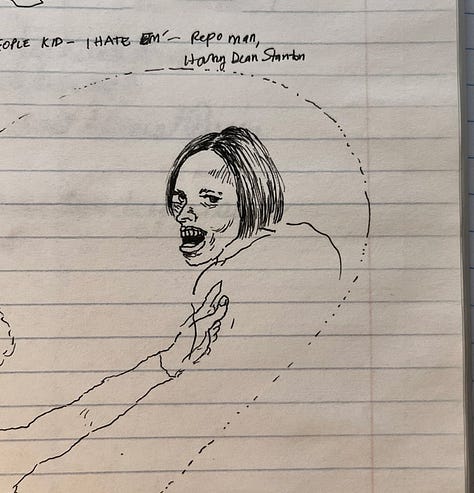 EOPLE KID - I HATE EM' - Repo man,
Harry Dean Stanton